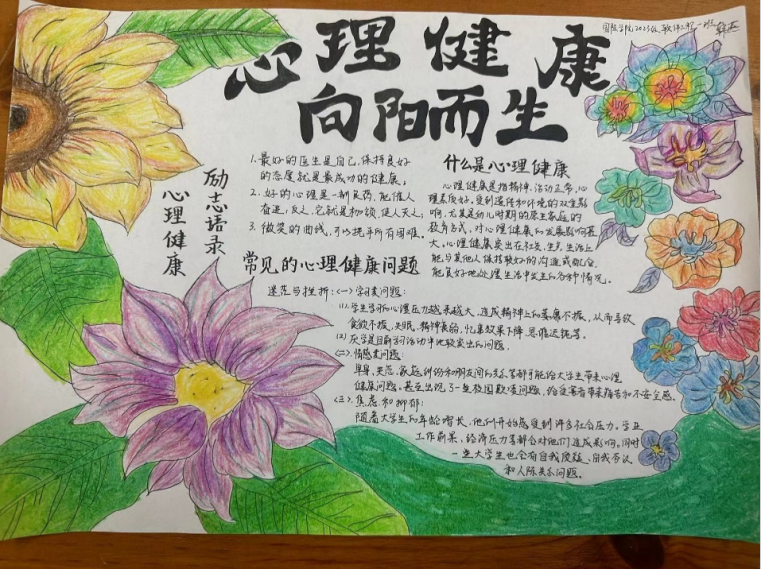 心理健康
向阳而生
国院学院2023级软件工程一班
励志语录
心理健康
1.最好的医生是自己,保持良好
的态度就是最成功的健康。
2.好的心理是一剂良药,能催人
奋进,反之,它就是枷锁,使人灭亡。
3.微笑的曲线,可以抚平所有困难。
什么是心理健康
心理健康是指精神、活动正常,心
理素质好,受到遗传和环境的双重影
响,尤其是幼儿时期的原生家庭的
教养方式,对心理健康和发展影响甚
大,心理健康突出在社交、生产、生活上
能与其他人保持较好的沟通或配合,
能良好地处理生活中发生的各种情况。
常见的心理健康问题
迷茫与挫折:(一)学习类问题:
(1)学生学习的心理压力越来越大,造成精神上的萎靡不振,从而导致
食欲不振、失眠、精神衰弱、忆事效果下降、思维迟钝等。
(2)厌学是目前学习活动中比较突出的问题.
(二)、情感类问题:
单身、失恋、家庭纠纷和朋友间的关系等都可能给大学生带来心理
健康问题。甚至出现了一些校园欺凌问题,给受害者带来痛苦和不安全感。
(三)、焦虑和抑郁:
随着大学生的年龄增长,他们开始感受到许多社会压力,学业
工作前景,经济压力等都会对他们造成影响。同时
一些大学生也会有自我质疑、自我否认
和人际关系问题。